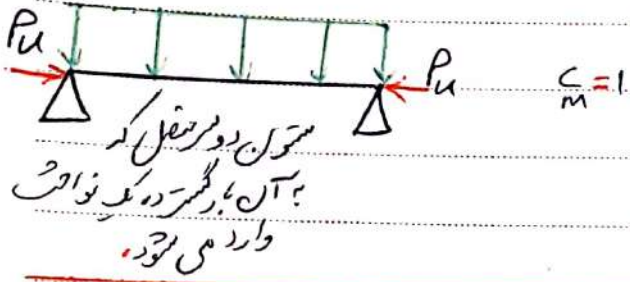 Pu
Pu
C_m = 1
ستون دو سر مفصل که
به آن بار گسترده یک نواخت
وارد می شود.